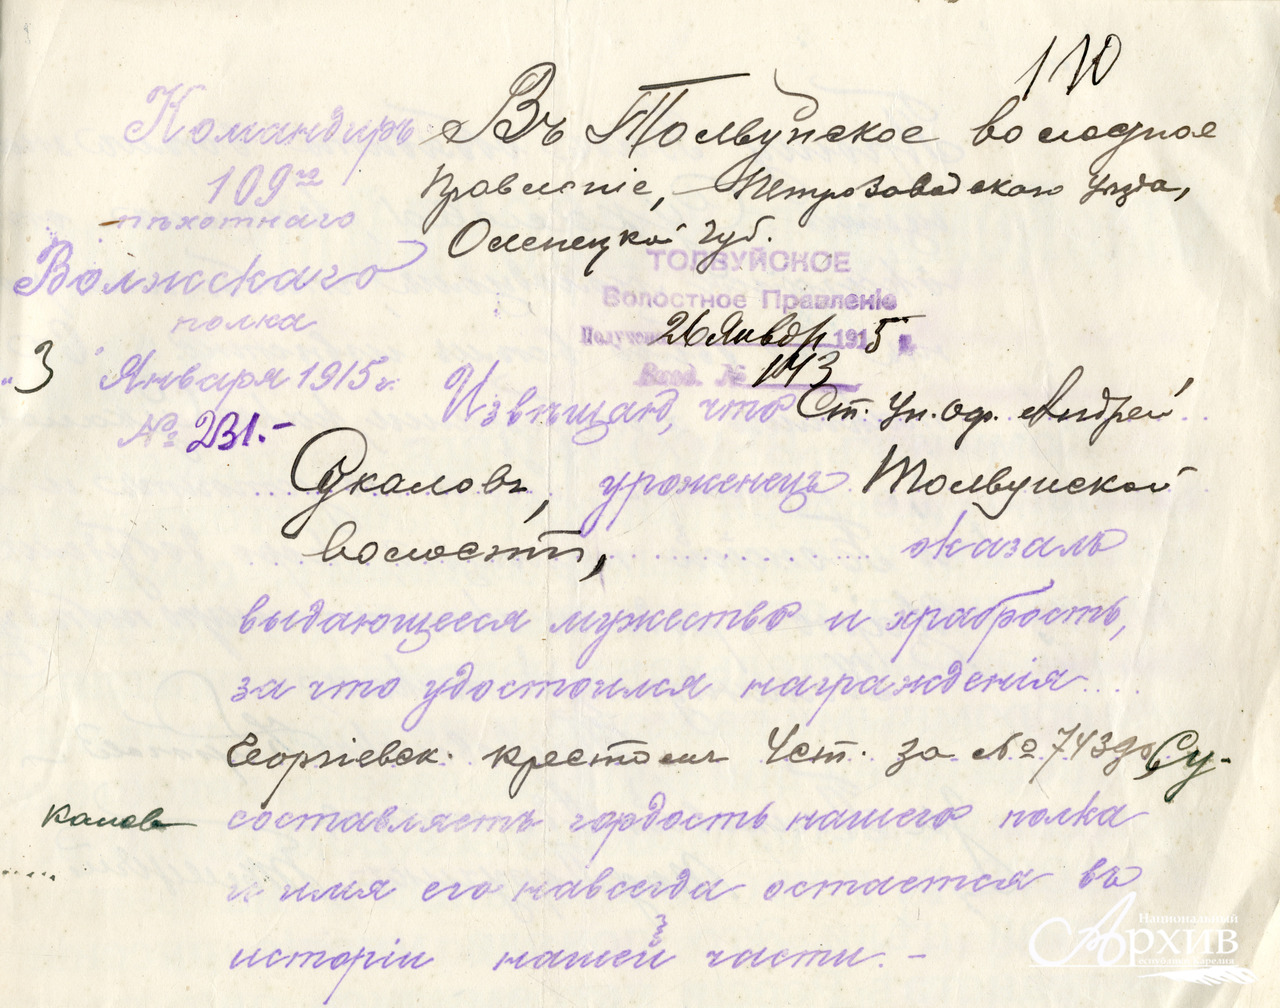 110
Командиръ
109го
пѣхотнаго
Волжскаго
полка
"3" Января 1915 г.
№ 231.-
Въ Толвуйское волостное
Правленіе, Петрозаводскаго уѣзда,
Олонецкой губ.
ТОЛВУЙСКОЕ
Волостное Правленіе
Получено 26 Январ 1915 г.
Вход. № 143
Извѣщаю, что Ст. Ун. Оф. Андрей
Сукаловъ, уроженецъ Толвуйской
волости, оказалъ
выдающееся мужество и храбрость,
за что удостоился награжденія
Георгіевск. крестомъ 4 ст. за № 7439 Су-
каловъ составляетъ гордость нашего полка
и имя его навсегда остается въ
исторіи нашей части. -
Национальный
Архив
республики карелия